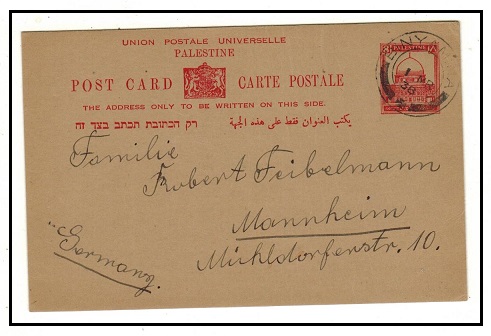 UNION POSTALE UNIVERSELLE
PALESTINE
POST CARD CARTE POSTALE
THE ADDRESS ONLY TO BE WRITTEN ON THIS SIDE.
רק הכתובת תכתב בצד זה يكتب العنوان فقط على هذه الجهة
PALESTINE
Familie
Robert Feibelmann
Mannheim
Mühldorferstr. 10.
Germany